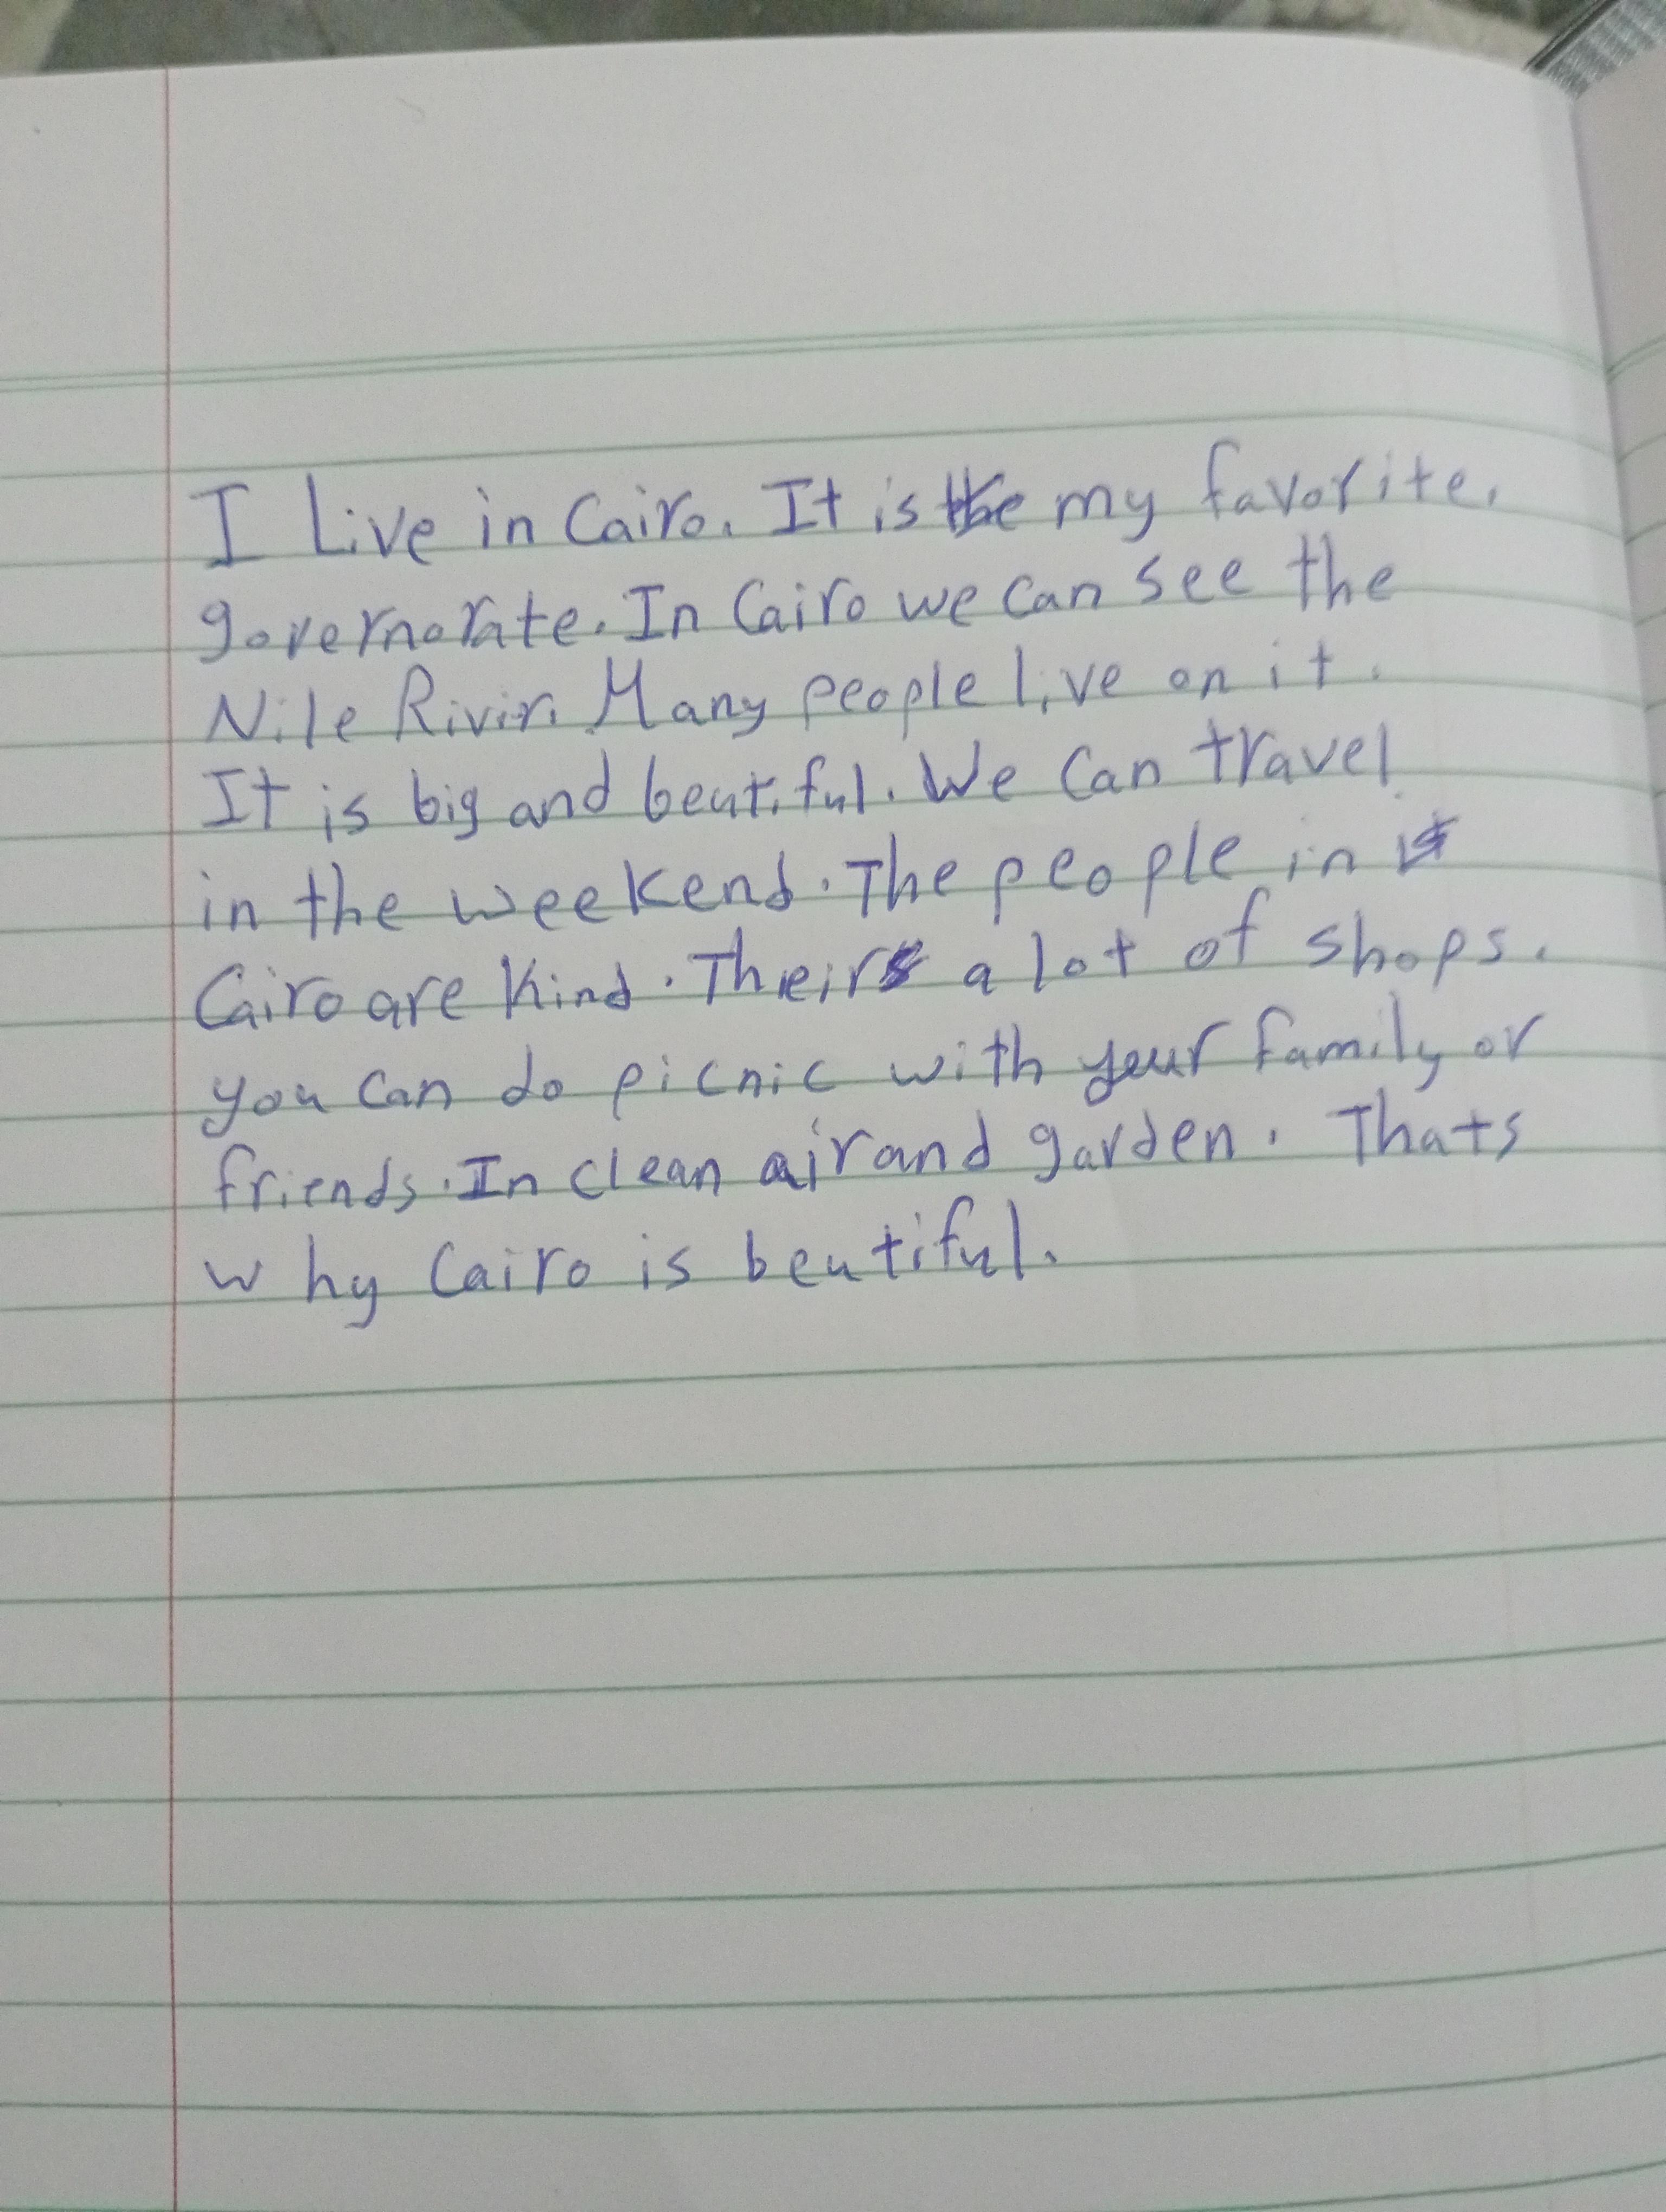 I Live in Cairo. It is the my favorite.
governorate. In Cairo we can see the
Nile Rivir. Many people live on it.
It is big and beutiful. We can travel
in the weekend. The people in
Cairo are kind. Their a lot of shops.
you can do picnic with your family or
friends. In clean air and garden. Thats
why Cairo is beutiful.